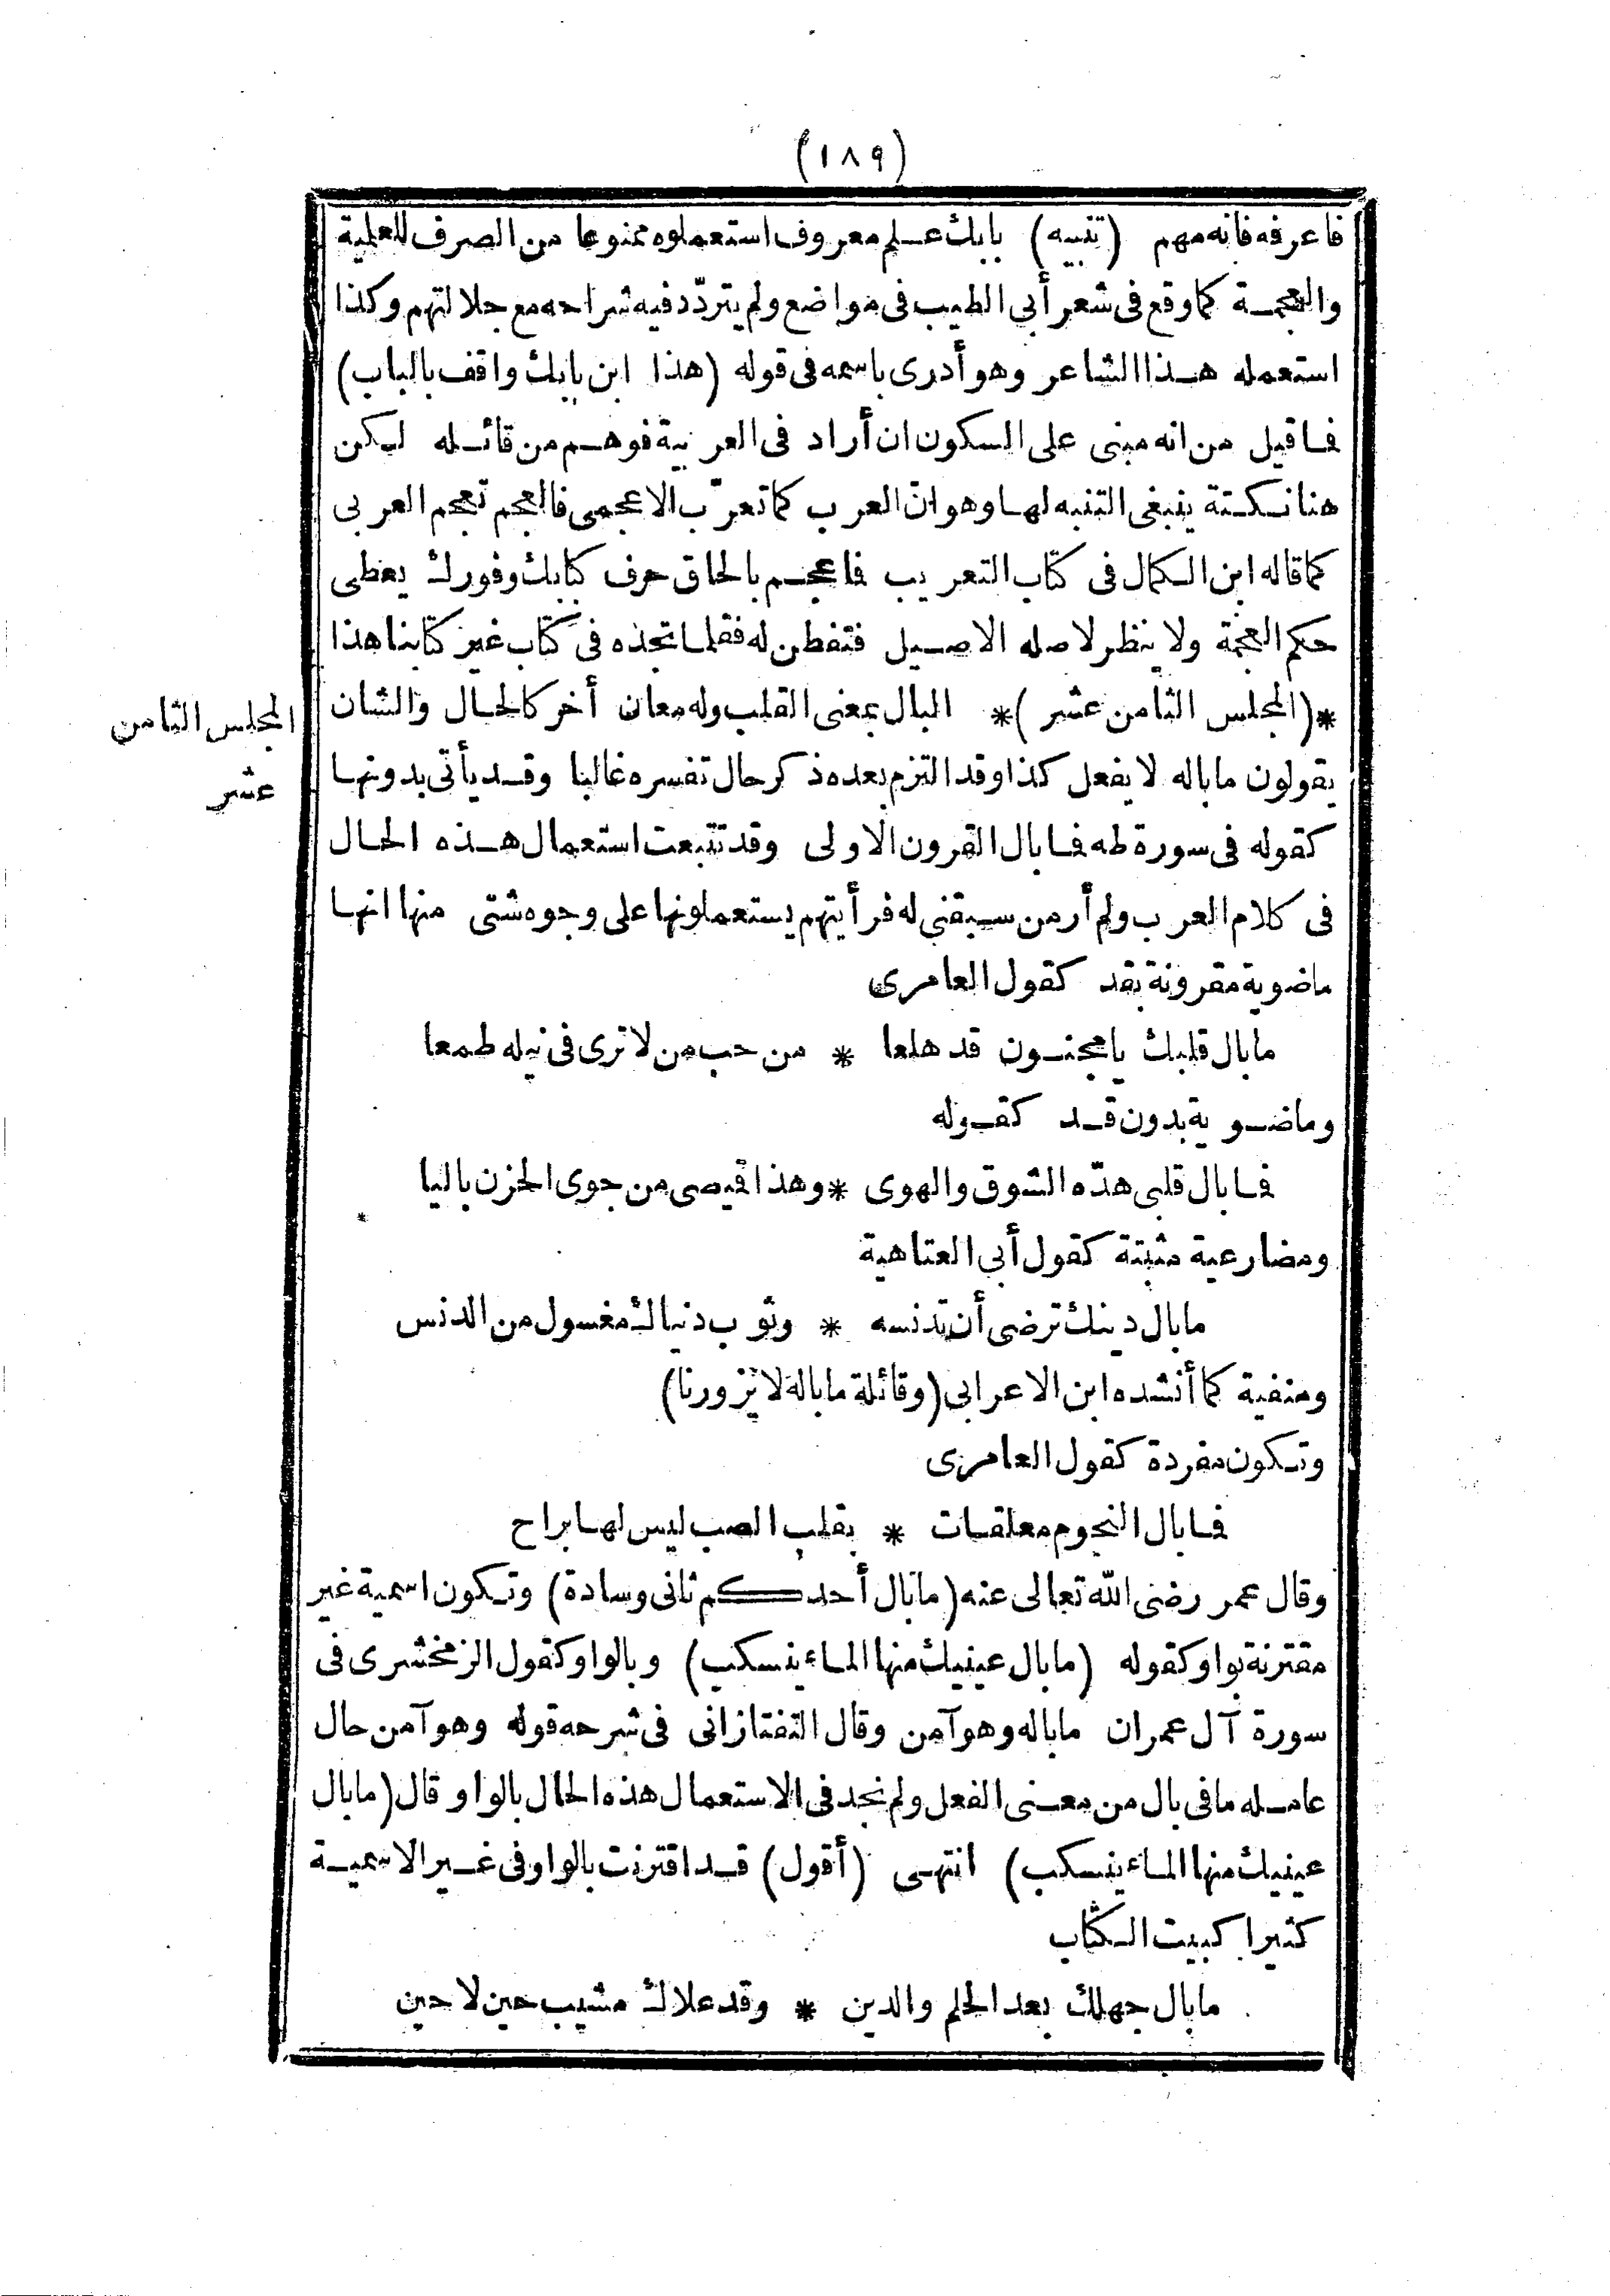 (١٨٩)
فاعرفه فانه مهم (تنبيه) بابك علم معروف استعملوه ممنوعا من الصرف للعلمية
والعجمة كما وقع فى شعر أبى الطيب فى مواضع ولم يتردّد فيه شراحه مع جلالتهم وكذا
استعمله هذا الشاعر وهو أدرى باسمه فى قوله (هذا ابن بابك واقف بالباب)
فما قيل من انه مبنى على السكون ان أراد فى العربية فوهم من قائله لكن
هنا نكتة ينبغى التنبه لها وهو انّ العرب كما تعرّب الاعجمى فالعجم تعجم العربى
كما قاله ابن الكمال فى كتاب التعريب فاعجم بالحاق حرف كبابك وفورك يعطى
حكم العجمة ولا ينظر لاصله الاصيل فتفطن له فقلما تجده فى كتاب غير كتابنا هذا
*(المجلس الثامن عشر)* البال بمعنى القلب وله معان أخر كالحال والشان
المجلس الثامن
عشر
يقولون ماباله لا يفعل كذا وقد التزم بعده ذكر حال تفسره غالبا وقد يأتى بدونها
كقوله فى سورة طه فما بال القرون الاولى وقد تتبعت استعمال هذه الحال
فى كلام العرب ولم أر من سبقنى له فرأيتهم يستعملونها على وجوه شتى منها انها
ماضوية مقرونة بقد كقول العامرى
مابال قلبك يا مجنون قد هلعا * من حب من لا ترى فى نيله طمعا
وماضوية بدون قد كقوله
فما بال قلبى هدّه الشوق والهوى * وهذا قميصى من جوى الحزن باليا
ومضارعية مثبتة كقول أبى العتاهية
مابال دينك ترضى أن تدنسه * وثوب دنياك مغسول من الدنس
ومنفية كما أنشده ابن الاعرابى (وقائلة ماباله لا يزورنا)
وتكون مفردة كقول العامرى
فما بال النجوم معلقات * بقلب الصب ليس لها براح
وقال عمر رضى الله تعالى عنه (مابال أحدكم ثانى وسادة) وتكون اسمية غير
مقترنة بواو كقوله (مابال عينيك منها الماء ينسكب) وبالواو كقول الزمخشرى فى
سورة آل عمران ماباله وهو آمن وقال التفتازانى فى شرحه قوله وهو آمن حال
عامله مافى بال من معنى الفعل ولم نجد فى الاستعمال هذه الحال بالواو قال (مابال
عينيك منها الماء ينسكب) انتهى (أقول) قد اقترنت بالواو فى غير الاسمية
كثيرا كبيت الكتاب
مابال جهلك بعد الحلم والدين * وقد علاك مشيب حين لا حين